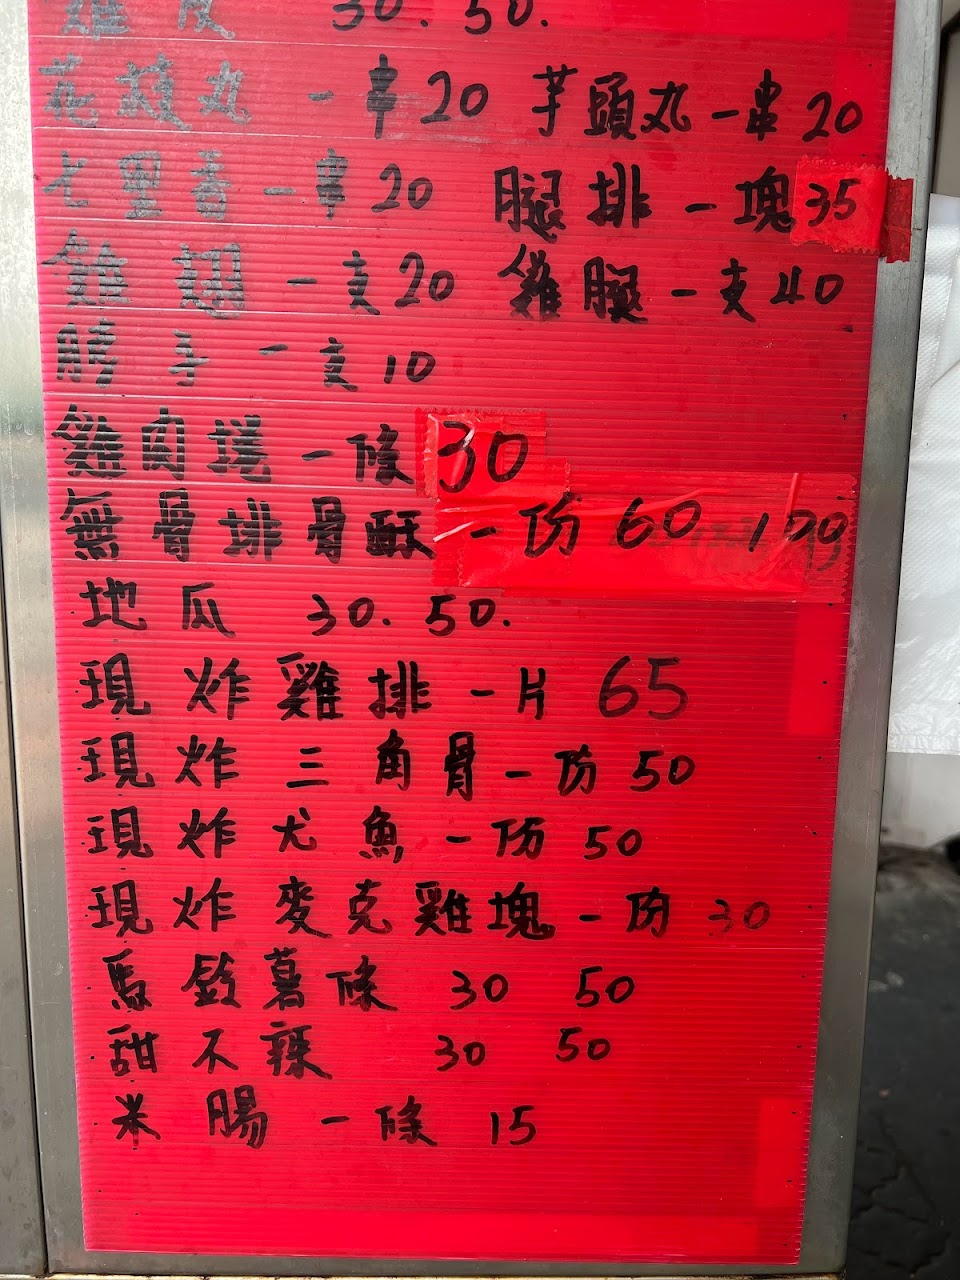 雞皮 30. 50.
花枝丸 一串20 芋頭丸一串20
七里香一串20 腿排一塊35
雞翅一支20 雞腿一支40
膀手一支10
雞肉捲一條30
無骨排骨酥一份60 100
地瓜 30. 50.
現炸雞排一片 65
現炸三角骨一份 50
現炸尤魚一份 50
現炸麥克雞塊一份 30
馬鈴薯條 30 50
甜不辣 30 50
米腸一條 15